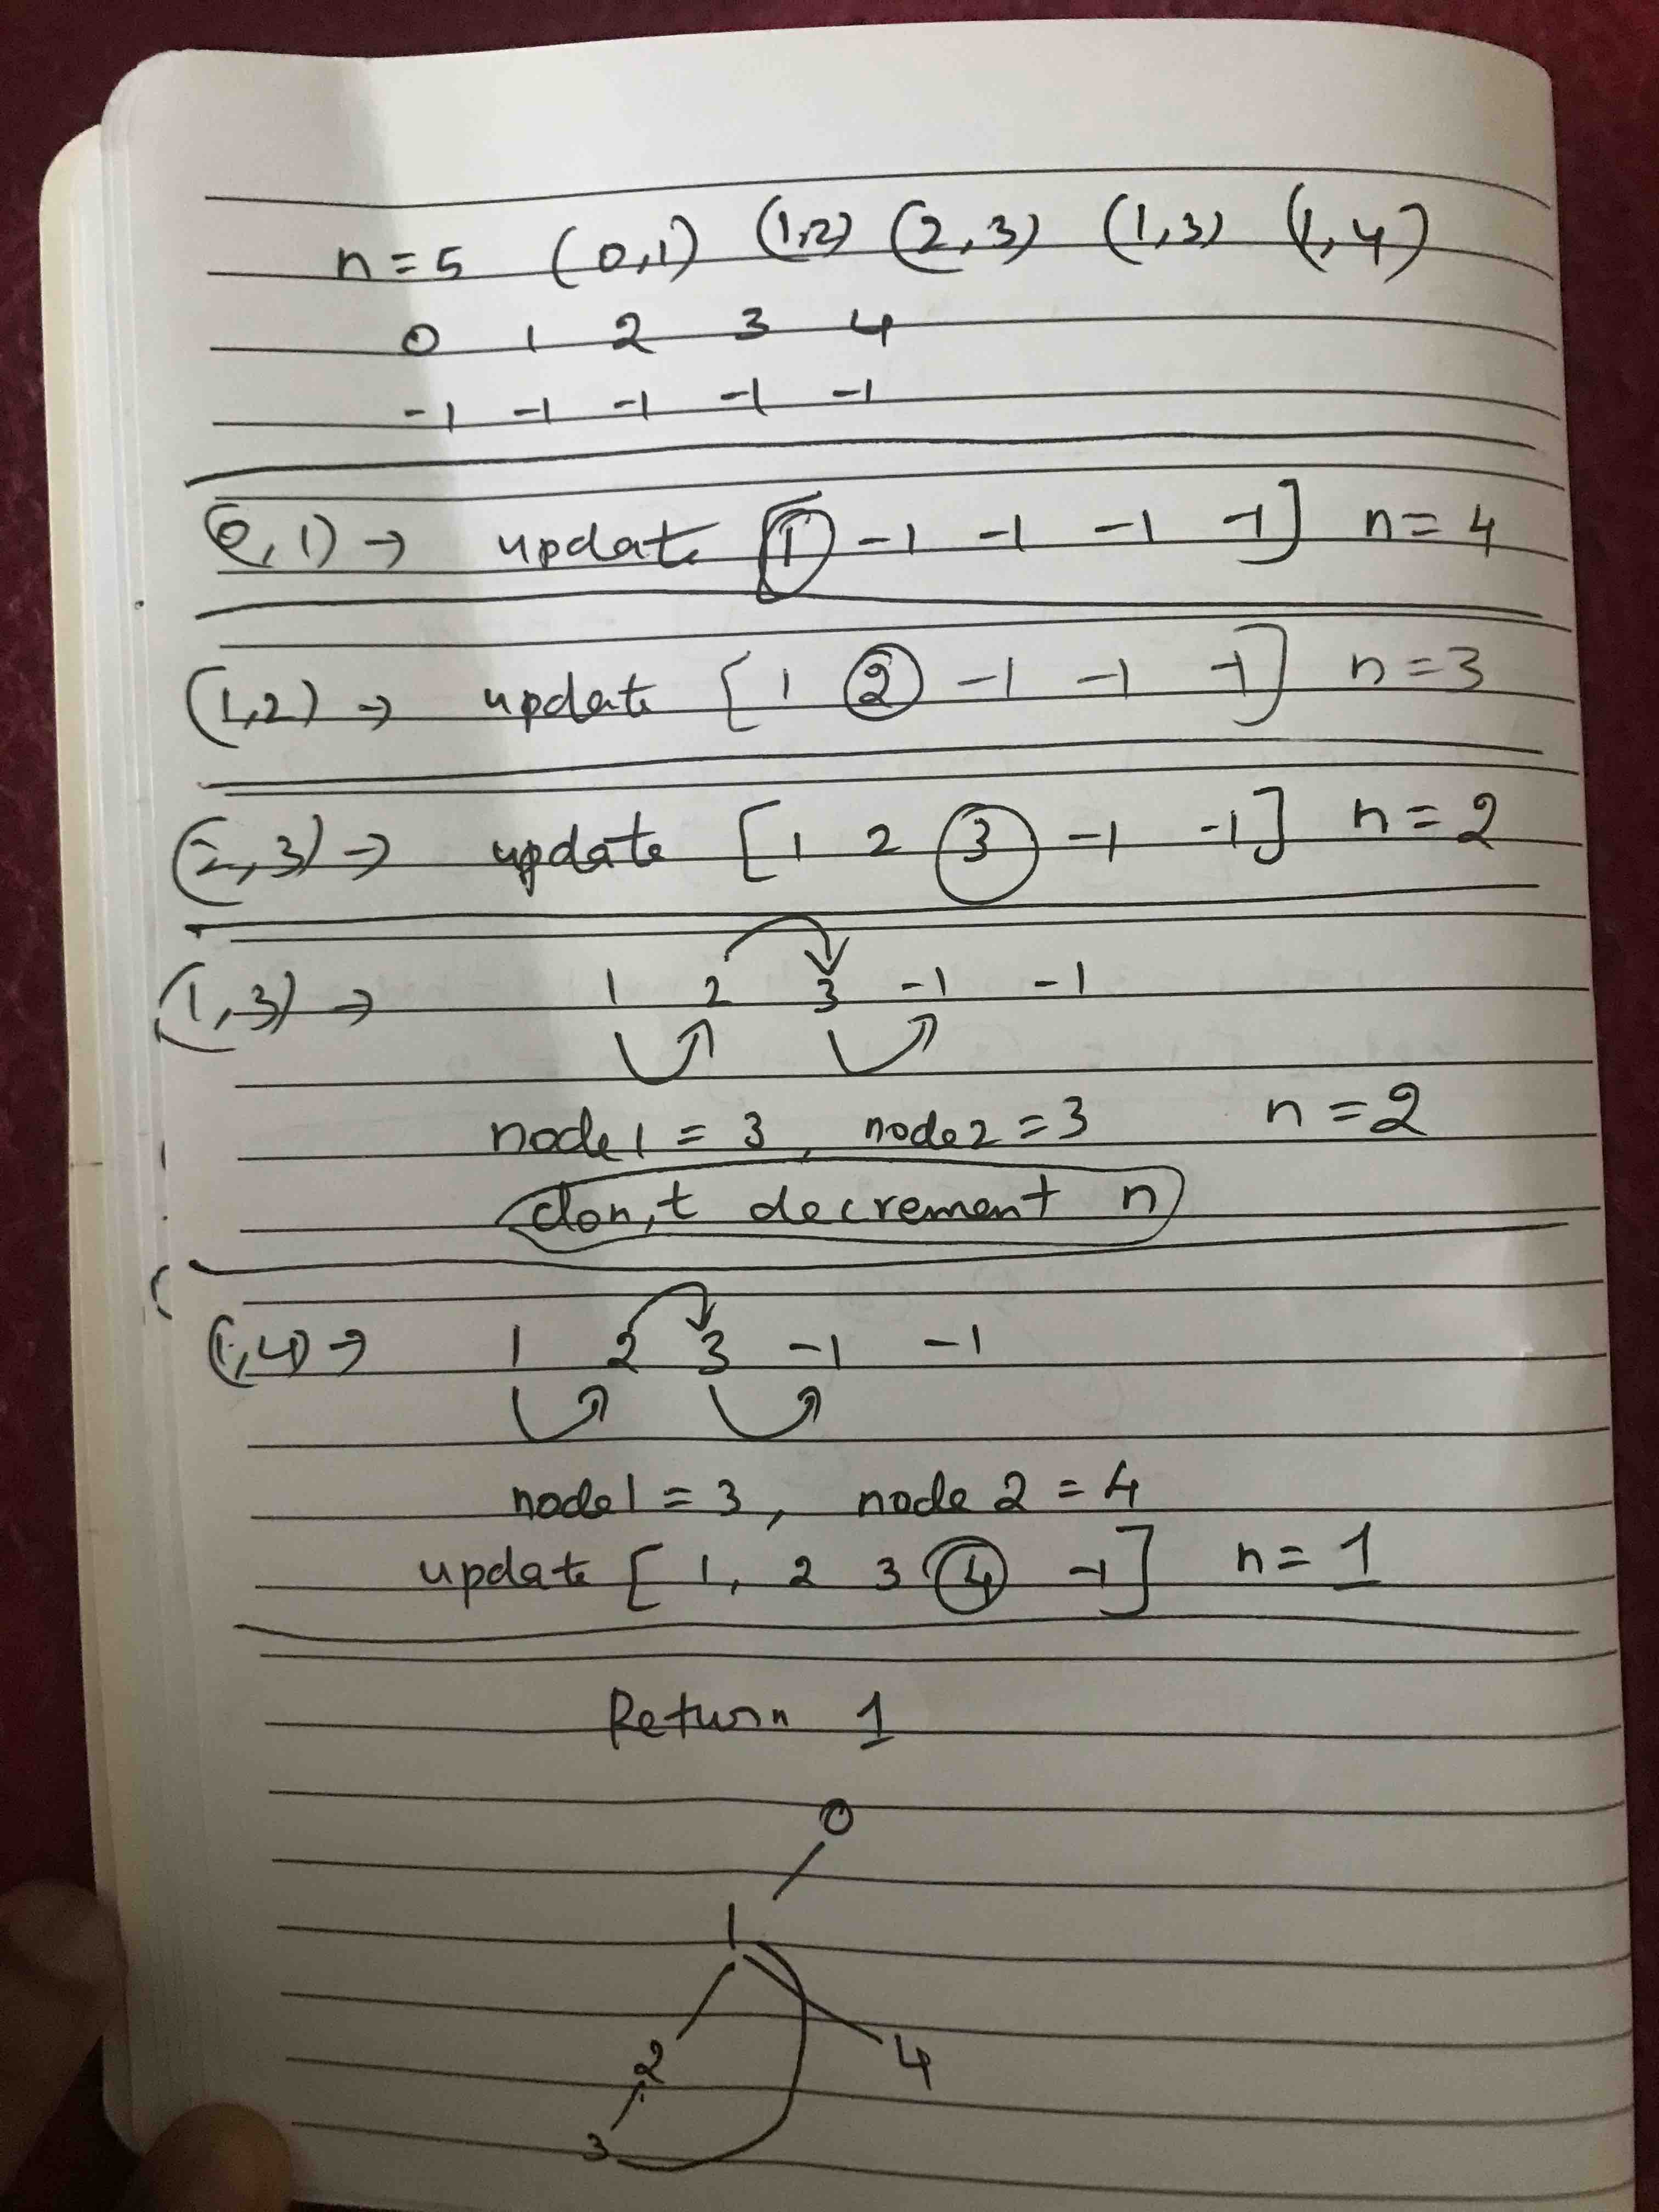 n = 5 (0,1) (1,2) (2,3) (1,3) (1,4)
0 1 2 3 4
-1 -1 -1 -1 -1
(0,1) → update [1 -1 -1 -1 -1] n = 4
(1,2) → update [1 2 -1 -1 -1] n = 3
(2,3) → update [1 2 3 -1 -1] n = 2
(1,3) → 1 2 3 -1 -1
node1 = 3, node2 = 3 n = 2
don,t decrement n
(1,4) → 1 2 3 -1 -1
node1 = 3, node2 = 4
update [1, 2 3 4 -1] n = 1
Return 1
0
1
2 4
3